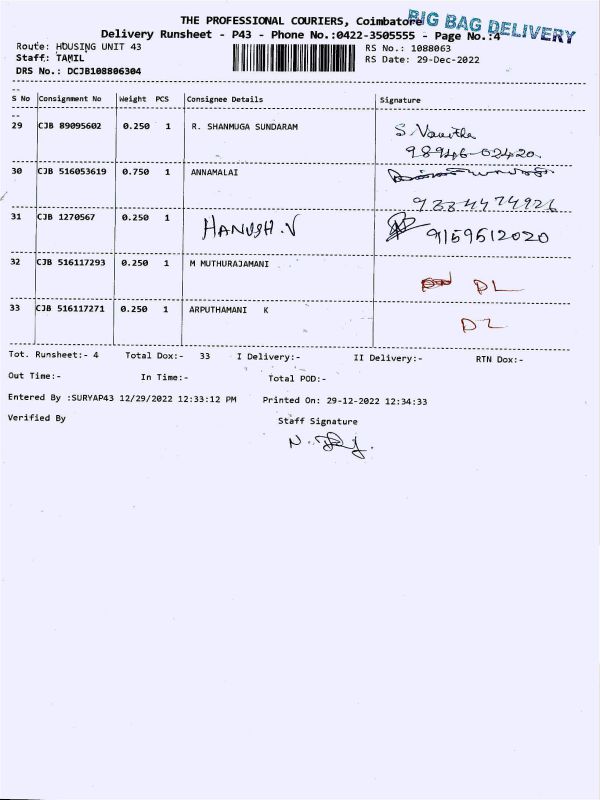 THE PROFESSIONAL COURIERS, Coimbatore
BIG BAG DELIVERY
Delivery Runsheet - P43 - Phone No.:0422-3505555 - Page No.:4
Route: HOUSING UNIT 43
RS No.: 1088063
Staff: TAMIL
RS Date: 29-Dec-2022
DRS No.: DCJB108806304
S No Consignment No Weight PCS Consignee Details Signature
29 CJB 89095602 0.250 1 R. SHANMUGA SUNDARAM S. Vanitha
98946-02420
30 CJB 516053619 0.750 1 ANNAMALAI
9884474926
31 CJB 1270567 0.250 1 HANUSH.V 9159512020
32 CJB 516117293 0.250 1 M MUTHURAJAMANI DL
33 CJB 516117271 0.250 1 ARPUTHAMANI K DL
Tot. Runsheet:- 4 Total Dox:- 33 I Delivery:- II Delivery:- RTN Dox:-
Out Time:- In Time:- Total POD:-
Entered By :SURYAP43 12/29/2022 12:33:12 PM Printed On: 29-12-2022 12:34:33
Verified By Staff Signature